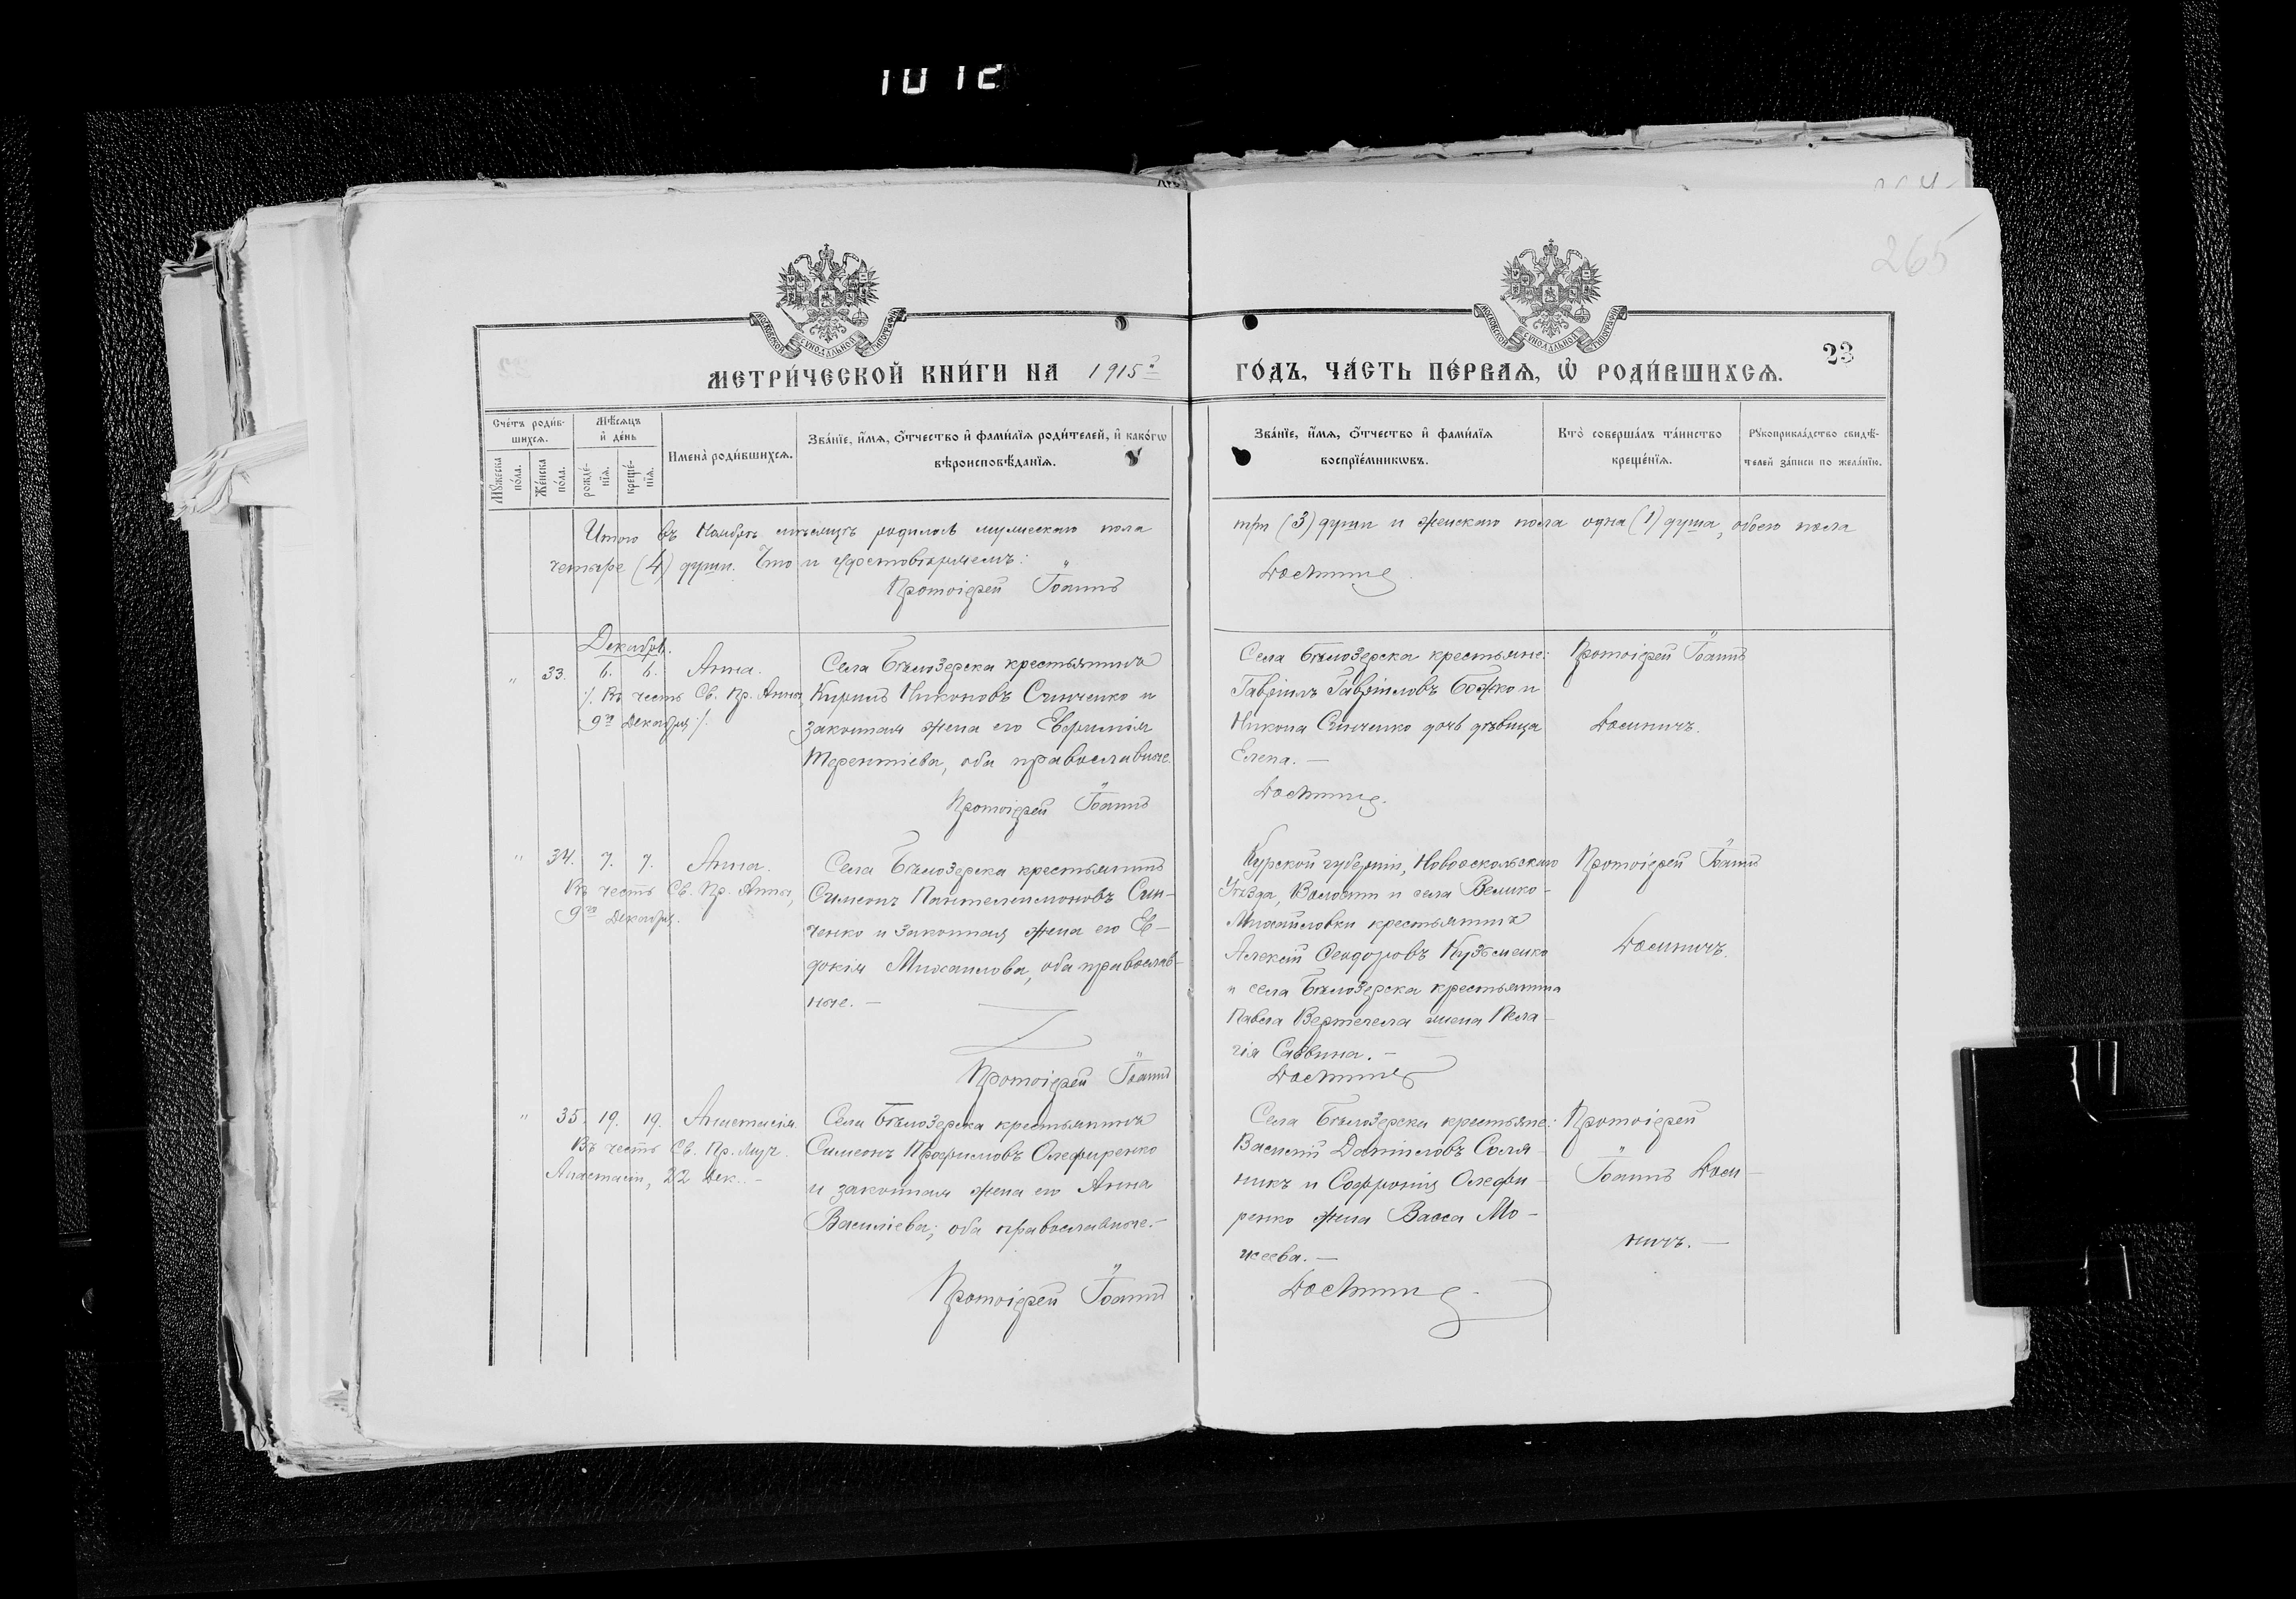 10 12
265
МОСКОВСКОЙ СѴНОДАЛЬНОЙ ТИПОГРАФІИ
МОСКОВСКОЙ СѴНОДАЛЬНОЙ ТИПОГРАФІИ
МЕТРИ́ЧЕСКОЙ КНИ́ГИ НА 1915й
ГО́ДЪ, ЧА́СТЬ ПЕ́РВАѦ, Ѡ҆ РОДИ́ВШИХСѦ. 23
Сче́тъ роди́в-
шихсѧ.
Мꙋ́жеска по́ла.
Же́нска по́ла.
Мѣ́сѧцъ
и҆ де́нь
рожде́-
нїѧ.
креще́-
нїѧ.
И҆мена̀ роди́вшихсѧ.
Зва́нїе, и҆́мѧ, ѻ҆́тчество и҆ фами́лїѧ роди́телей, и҆ како́гѡ
вѣроисповѣ́данїѧ.
Зва́нїе, и҆́мѧ, ѻ҆́тчество и҆ фами́лїѧ
воспрїе́мникѡвъ.
Кто̀ соверша́лъ та́инство
креще́нїѧ.
Рꙋкоприкла́дство свидѣ́-
телей за́писи по жела́нїю.
Итого въ Ноябрѣ мѣсяцѣ родилось мужескаго пола
три (3) души и женскаго пола одна (1) душа, обоего пола
четыре (4) души. Что и удостовѣряемъ:
Протоіерей Іоаннъ
Досиничъ.
Декабрь.
" 33. 6. 6. Анна.
/. Въ честь Св. Пр. Анны,
9го Декабря ./.
Села Бѣлозерска крестьянинъ
Кириллъ Никоновъ Синченко и
законная жена его Евфимія
Терентіева, оба православные.
Протоіерей Іоаннъ
Села Бѣлозерска крестьяне:
Гавріилъ Гавріиловъ Божко и
Никона Синченко дочь дѣвица
Елена. —
Досиничъ.
Протоіерей Іоаннъ
Досиничъ.
" 34. 7. 7. Анна.
Въ честь Св. Пр. Анны,
9го Декабря.
Села Бѣлозерска крестьянинъ
Симеонъ Пантелеимоновъ Син-
ченко и законная жена его Ев-
докія Михаилова, оба православ-
ные. —
Протоіерей Іоаннъ
Курской губерніи, Новооскольскаго
Уѣзда, Волости и села Велико-
Михайловки крестьянинъ
Алексій Ѳеодоровъ Кузьменко
и села Бѣлозерска крестьянина
Павла Вертечела жена Пела-
гія Саввина. —
Досиничъ
Протоіерей Іоаннъ
Досиничъ.
" 35. 19. 19. Анастасія.
Въ честь Св. Пр. Муч.
Анастасіи, 22 Дек. —
Села Бѣлозерска крестьянинъ
Симеонъ Трофимовъ Олефиренко
и законная жена его Анна
Василіева; оба православные. —
Протоіерей Іоаннъ
Села Бѣлозерска крестьяне:
Василій Даніиловъ Соля-
никъ и Софронія Олефи-
ренко жена Васса Мо-
исеева. —
Досиничъ.
Протоіерей
Іоаннъ Доси-
ничъ. —